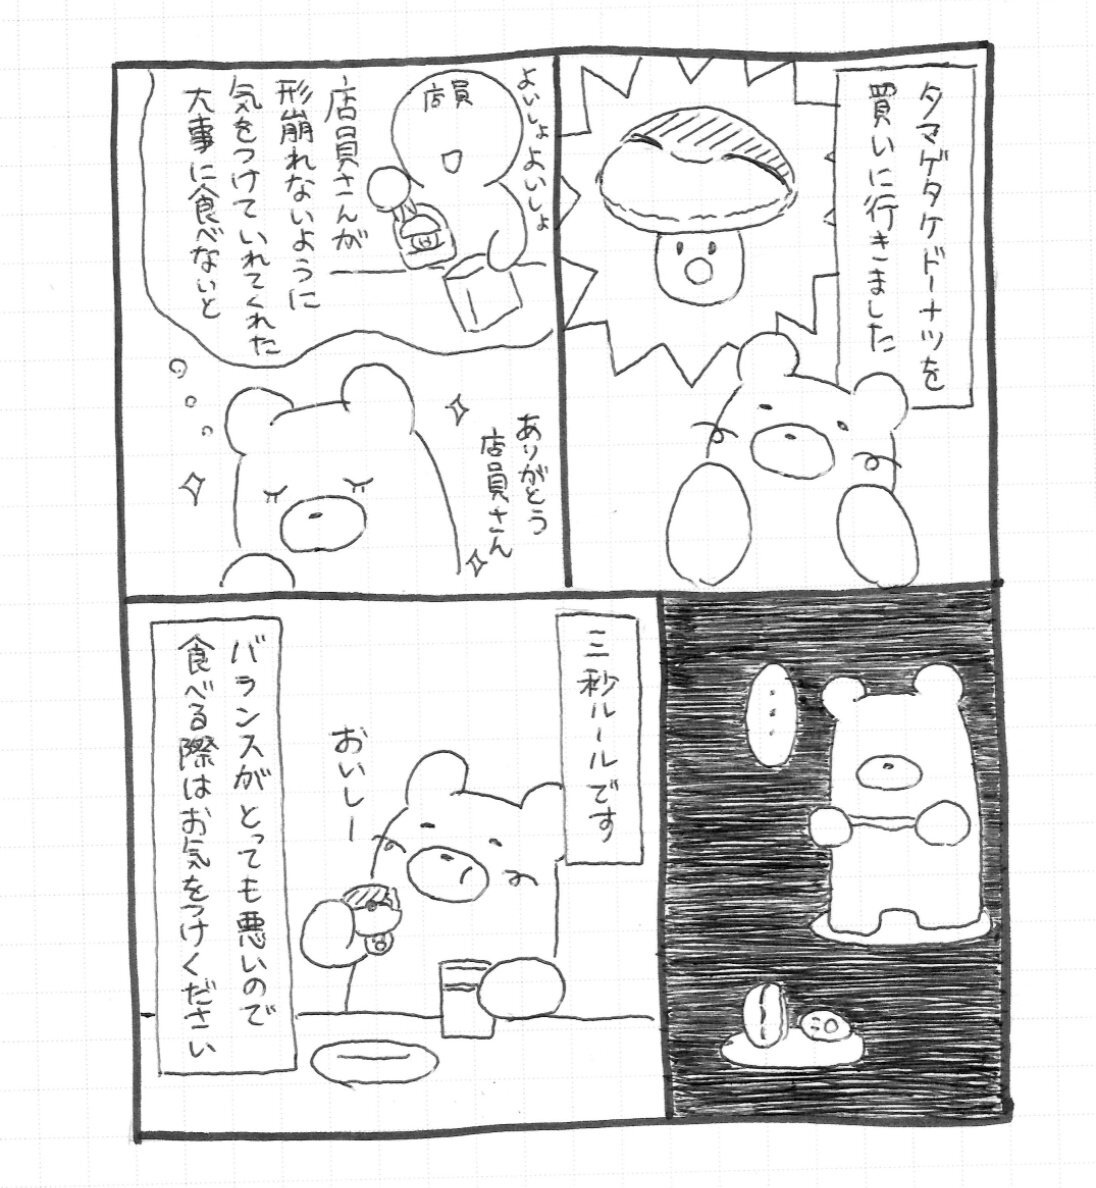 タマゲタケドーナツを
買いに行きました
よいしょよいしょ
店員
店員さんが
形崩れないように
気をつけていれてくれた
大事に食べないと
ありがとう
店員さん
…
三秒ルールです
おいしー
バランスがとっても悪いので
食べる際はお気をつけください